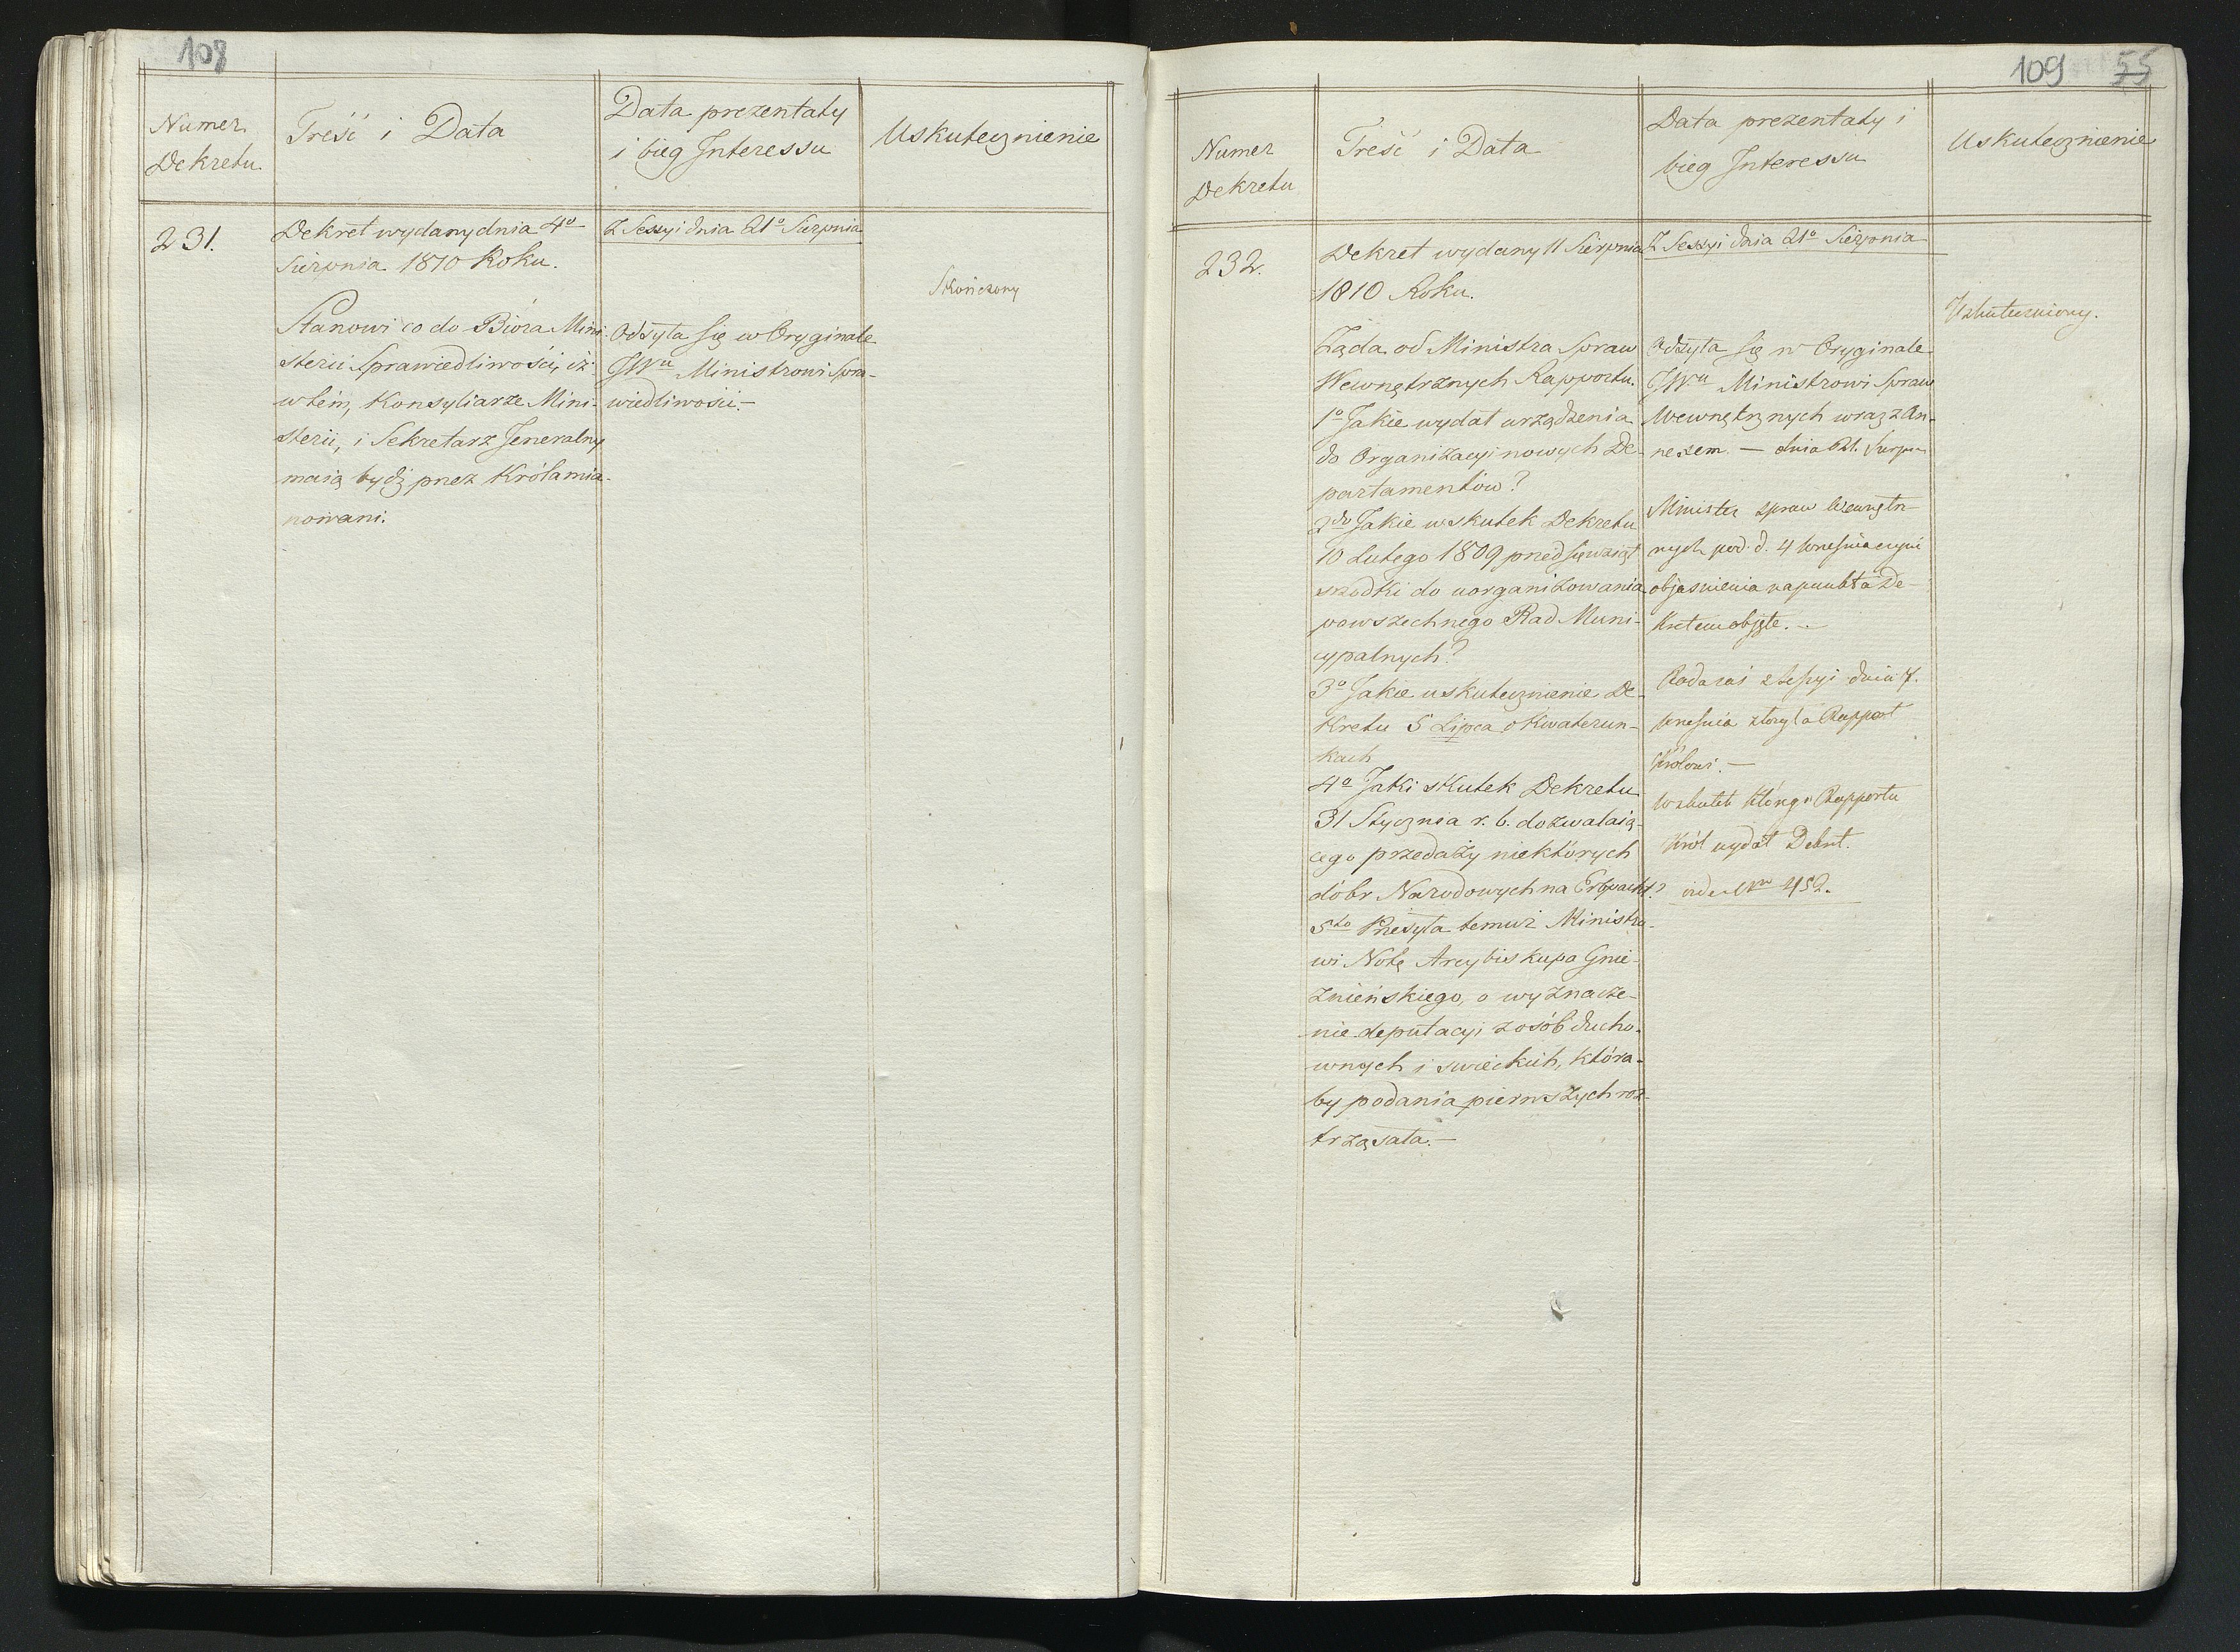 108
Numer
Dekretu
Treść i Data
Data prezentaty
i bieg Interessu
Uskutecznienie
231.
Dekret wydany dnia 4º
Sierpnia 1810 Roku.
Stanowi co do Bióra Mini-
sterii Sprawiedliwości, iż
w tém, Konsyliarze Mini-
sterii, i Sekretarz Jeneralny
maią bydź przez Króla mia-
nowani.
Z Sessyi dnia 21º Sierpnia
Odsyła się w Oryginale
JWu Ministrowi Spra-
wiedliwości.—
Skończony
109 55
Numer
Dekretu
Treść i Data
Data prezentaty i
bieg Interessu
Uskutecznienie
232.
Dekret wydany 11 Sierpnia
1810 Roku.
Żąda od Ministra Spraw
Wewnętrznych Rapportu.
1º Jakie wydał urządzenia
do Organizacyi nowych De-
partamentów?
2do Jakie w skutek Dekretu
10 Lutego 1809 przedsięwziął
srzodki do uorganizowania
powszechnego Rad Muni-
cypalnych?
3º Jakie uskutecznienie De-
kretu 5 Lipca o Kwaterun-
kach
4º Jaki skutek Dekretu
31 Stycznia r. b. dozwalaią-
cego przedaży niektórych
dóbr Narodowych na Erbpacht?
5to Przesyła temuż Ministro-
wi Notę Arcybiskupa Gnie-
źnieńskiego, o wyznacze-
nie deputacyi z osób ducho-
wnych i swieckich, która-
by podania pierwszych roz-
trząsała.—
Z Sessyi dnia 21º Sierpnia
Odsyła się w Oryginale
JWu Ministrowi Spraw
Wewnętrznych wraz z An-
nexem. — dnia 21. Sierpn
Minister spraw Wewnętrz-
nych pod d. 4 Września czyni
objasnienia na punkta De-
kretem objęte.—
Rada zaś z Sessyi dnia 7.
Września złożyła Rapport
Królowi.—
W skutek którego Rapportu
Król wydał Dekret.
vide Nru 452.
Uskuteczniony.